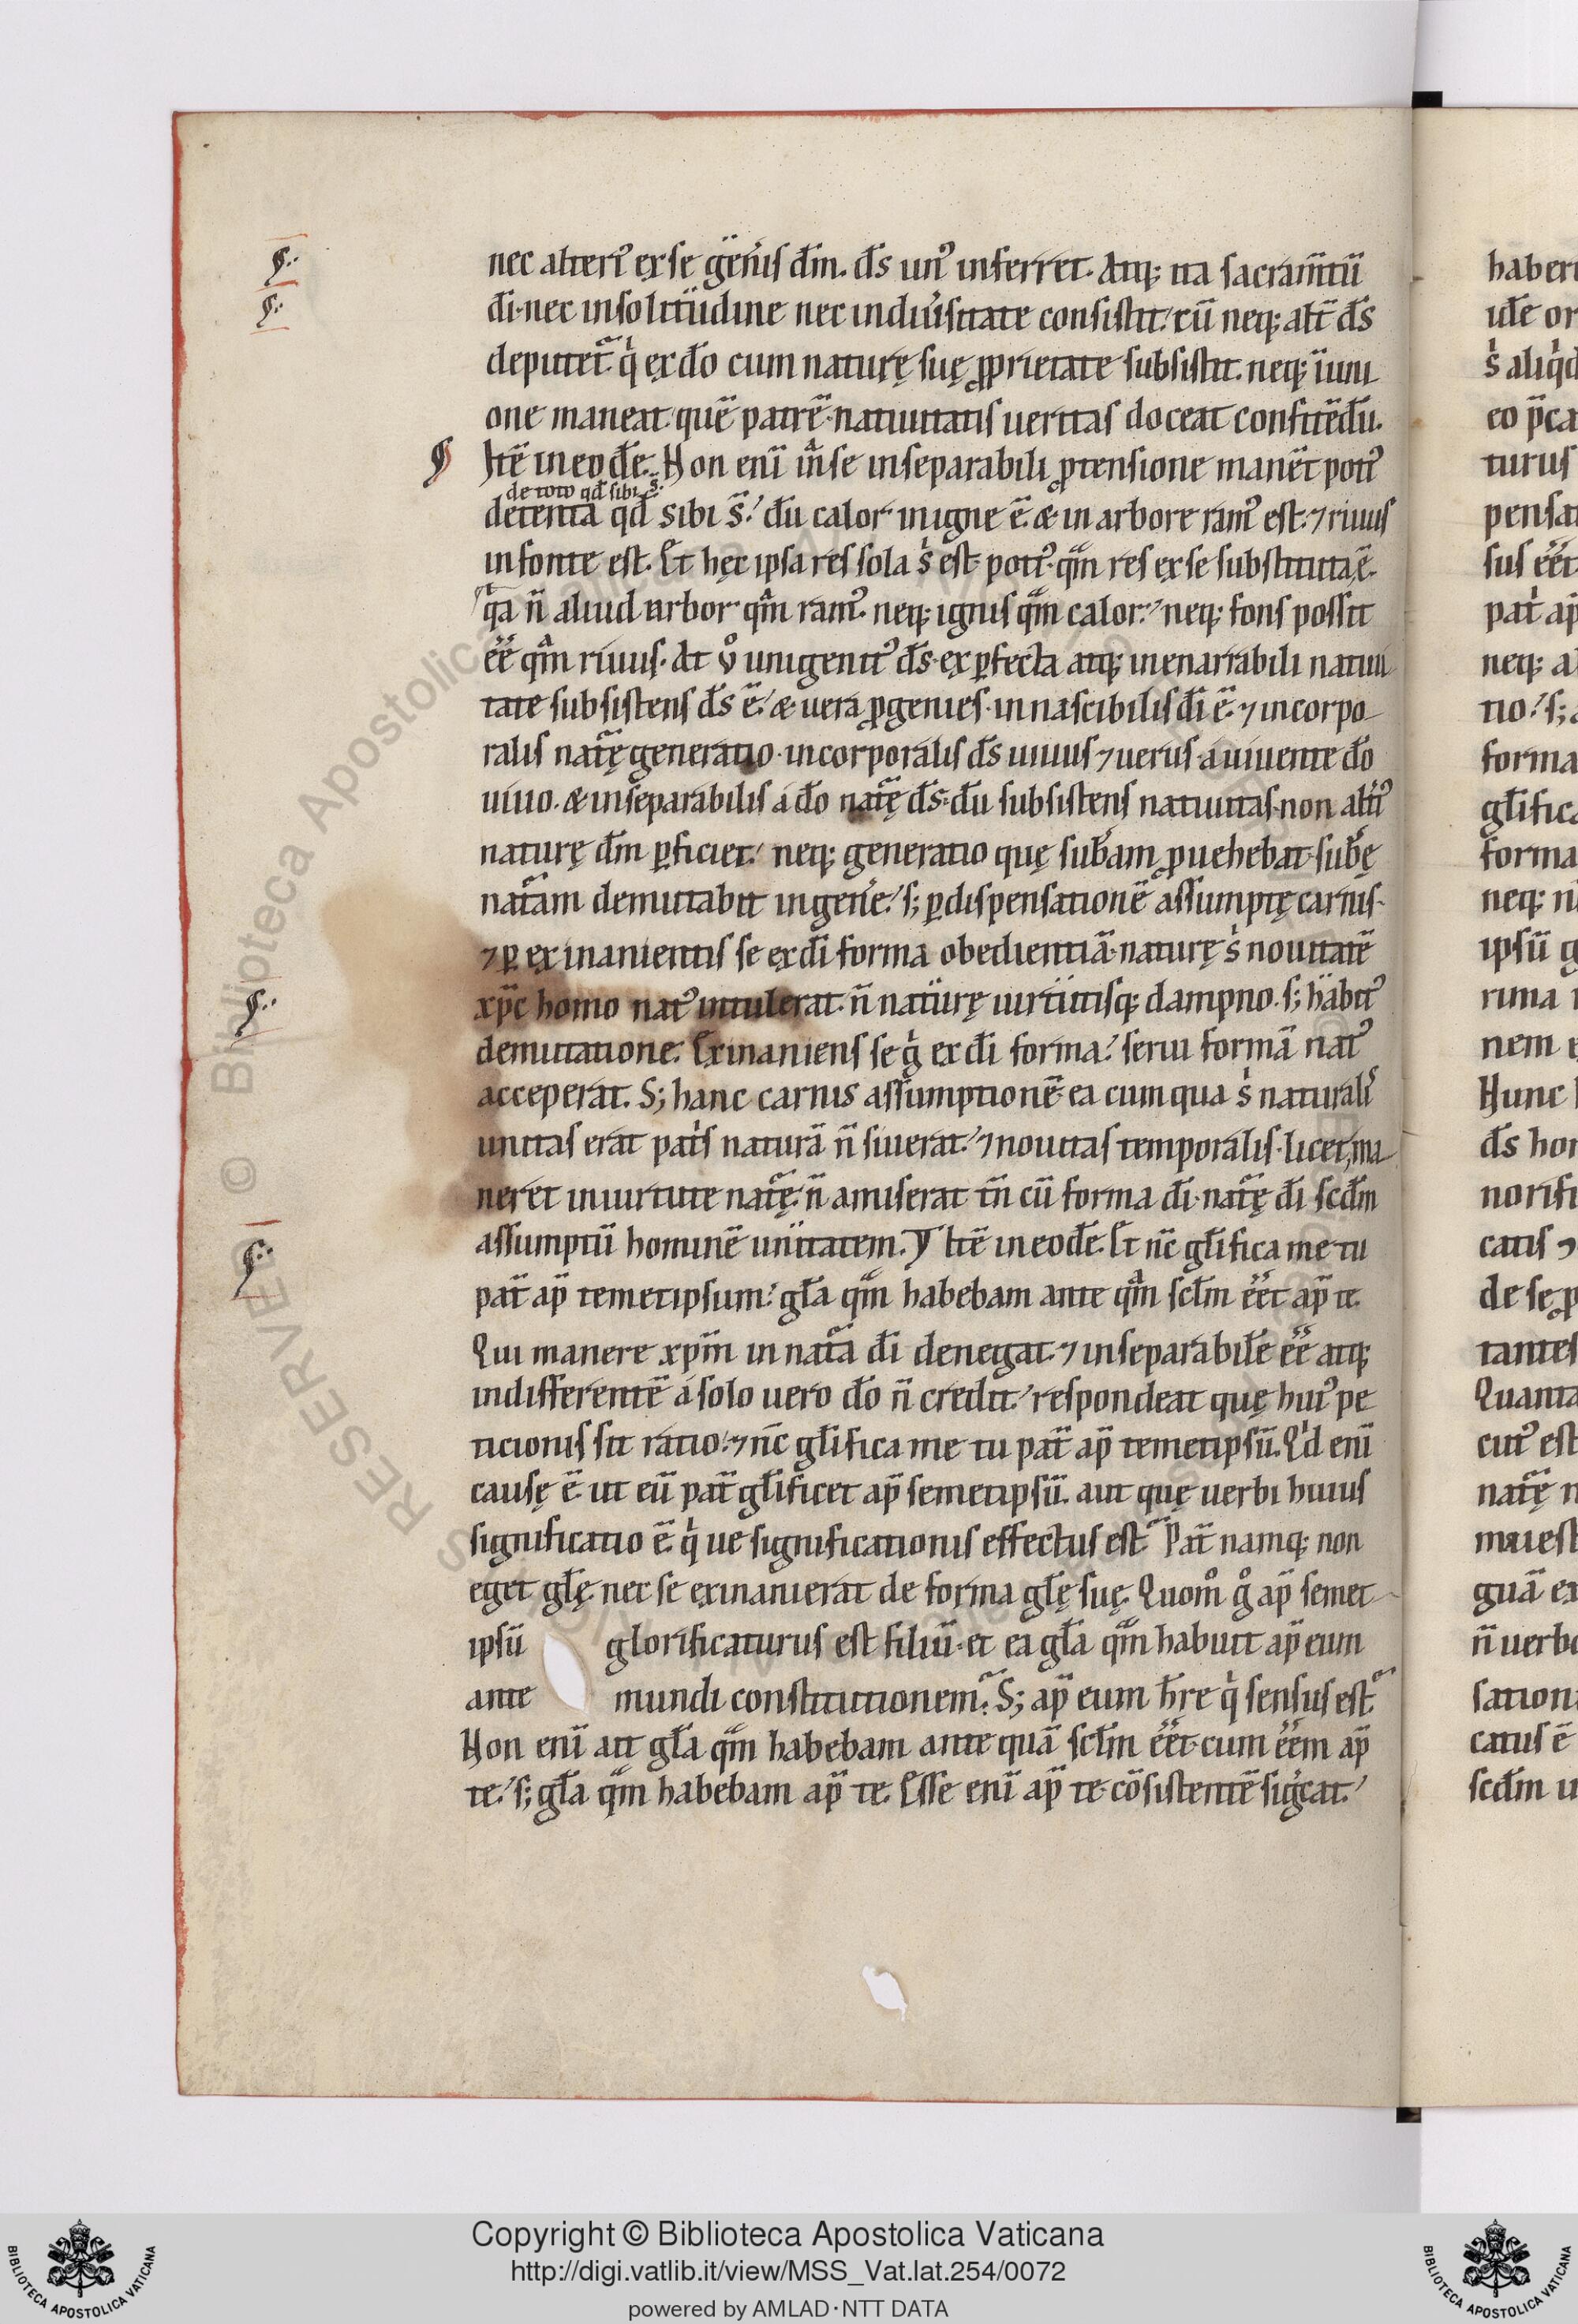 nec alteri᷒ ex se gen̄is dm̄. ds̄ un᷒ inferret. Atq; ita sacram̄tū
dī·nec in solitudine nec in diu̾sitate consistit. cū neq; alt̄ ds̄
deputet᷑ qͥ ex dō cum naturę suę ꝓprietate subsistit. neq; uni
one maneat quē patrē natiuitatis ueritas doceat confitēdū.
Itē in eodē. Non enī in se inseparabili ꝓtensione manēt poti᷒
de toto qd̄ sibi s̄.
detenta qd̄ sibi s̄. dū calor in igne ē. & in arbore ram᷒ est. ⁊ riuus
in fonte est. Et hęc ipsa res sola ṡ est poti᷒ qm̄ res ex se substituta ē.
qͣa n̄ aliud arbor qͣm ram᷒. neq; ignis qm̄ calor. neq; fons possit
ee̅ qͣm riuus. At ūͦ unigenit᷒ ds̄ ex ꝑfecta atq; inenarrabili natiui
tate subsistens ds̄ ē. & uera ꝓgenies innascibilis dī ē. ⁊ incorpo
ralis nat᷑ę generatio. incorporalis ds̄ uiuus ⁊ uerus a uiuente dō
uiuo. & inseparabilis á dō nat᷑ę ds̄. dū subsistens natiuitas non alti᷒
naturę dm̄ ꝑficiet. neq; generatio quę sub̄am ꝓuehebat sub̄ę
nat᷑am demutabit in gen̄e. s; ꝑ dispensationē assumptę carnis.
⁊ ꝑ exinanientis se ex dī forma obedientiā naturę ṡ nouitatē
xp̄c homo nat᷒ intulerat. n̄ naturę uirtutisq; dampno. s; habit᷒
demutatione. Exinaniens se gͥ ex dī forma. serui formā nat᷒
acceperat. S; hanc carnis assumptionē ea cum qua ṡ naturalis
unitas erat pat̾s naturā n̄ siuerat. ⁊ nouitas temporalis licet ma
neret in uirtute nat᷑ę. n̄ amiserat tn̄ cū forma dī nat᷑ę dī scd̄m
assumptū hominē unitatem. Itē in eodē. Et nc̄ gl̄ifica me tu
pat̄ ap̄ temetipsum. gl̄a qm̄ habebam ante qͣm scl̄m eēt ap̄ te.
Qui manere xpm̄ in nat᷑a dī denegat. ⁊ inseparabilē ee̅ atq;
indifferentē á solo uero dō n̄ credit. respondeat quę hui᷒ pe
ticionis sit ratio. ⁊ nc̄ gl̄ifica me tu pat̄ ap̄ temetipsū. Qͥd enī
causę ē ut eū pat̄ gl̄ificet ap̄ semetipsū. aut quę uerbi huius
significatio ē. qͥ ue significationis effectus est. Pat̄ namq; non
eget gl̄ę nec se exinanierat de forma gl̄ę suę. Quom̊ g̊ ap̄ semet
ipsū glorificaturus est filiū. et ea gl̄a qm̄ habuit ap̄ eum
ante mundi constitutionem. S; ap̄ eum h̄re qͥ sensus est.
Non enī ait gl̄a qm̄ habebam ante quā scl̄m eēt cum eēm ap̄
te. s; gl̄a qm̄ habebam ap̄ te. Esse enī ap̄ te cōsistentē sig̾cat.
Copyright © Biblioteca Apostolica Vaticana
http://digi.vatlib.it/view/MSS_Vat.lat.254/0072
powered by AMLAD·NTT DATA